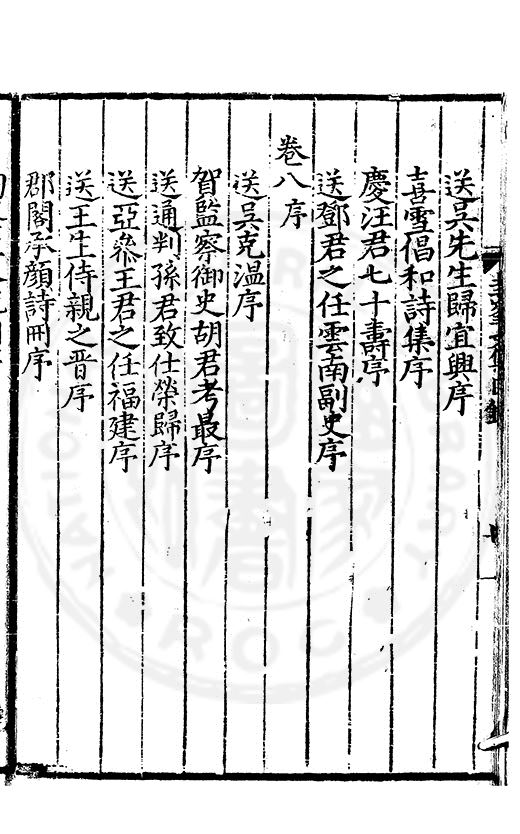 送吳先生歸宜興序
喜雪倡和詩集序
慶汪君七十壽序
送鄧君之任雲南副史序
卷八序
送吳克温序
賀監察御史胡君考最序
送通判孫君致仕榮歸序
送亞叅王君之任福建序
送王生侍親之晋序
郡閣承顔詩冊序